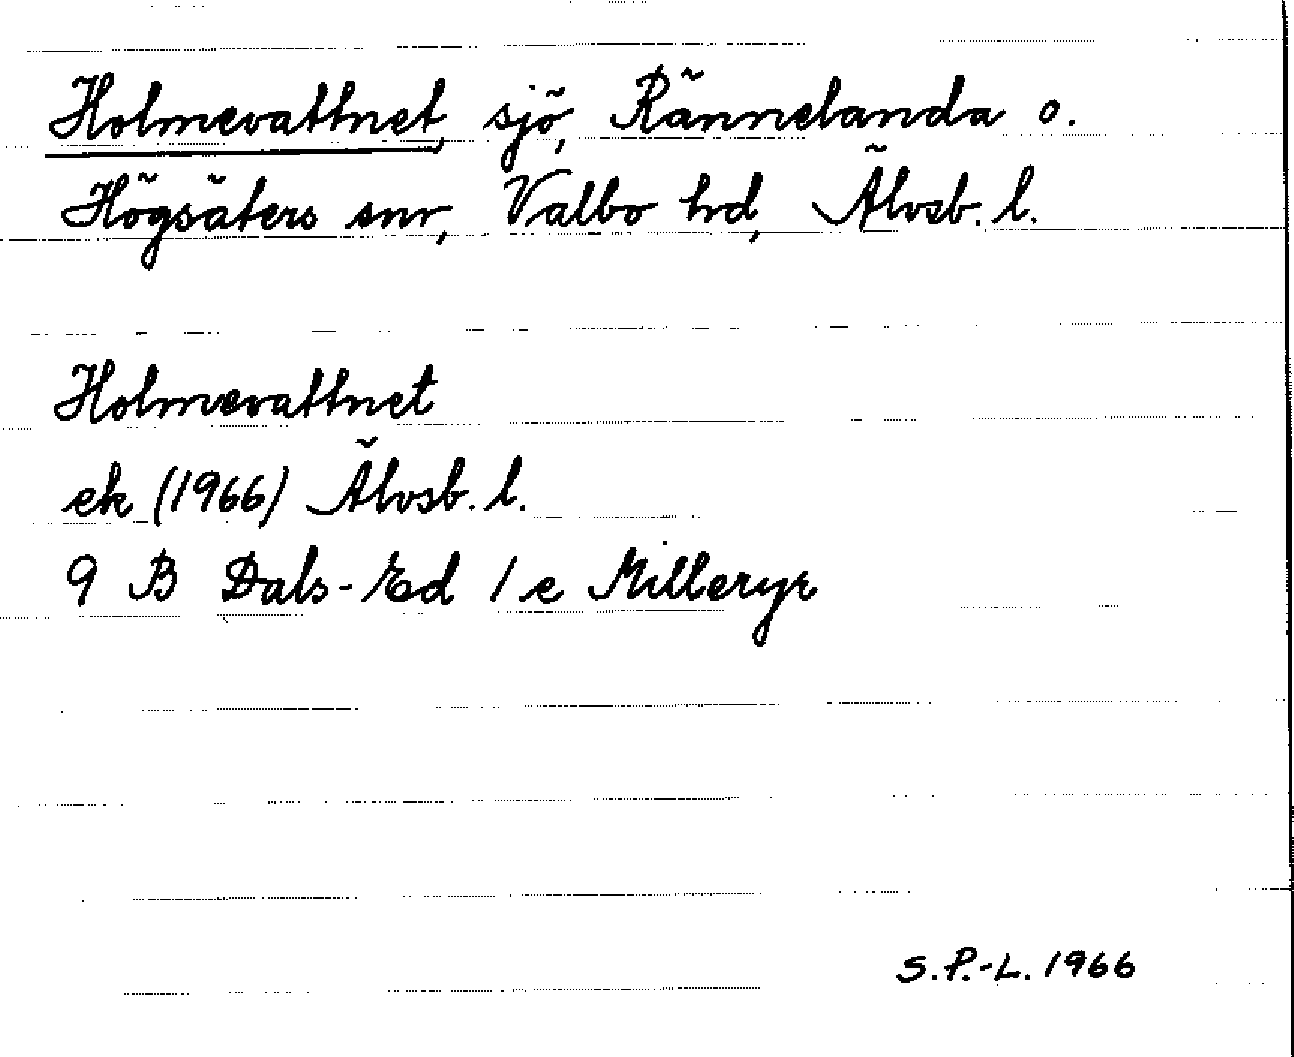 Holmevattnet, sjö, Rännelanda o.
Högsäters snr, Valbo hd, Älvsb. l.
Holmevattnet
ek (1966) Älvsb. l.
9 B Dals-Ed 1 e Milleryr
S.P.-L. 1966